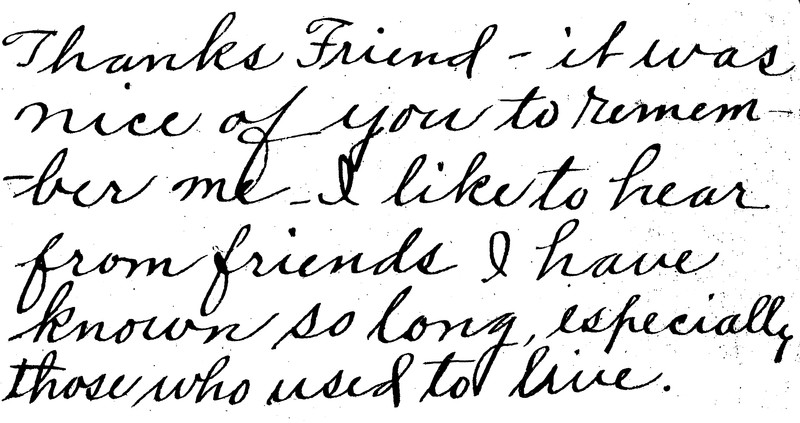 Thanks Friend - it was
nice of you to remem-
-ber me - I like to hear
from friends I have
known so long, especially
those who used to live.